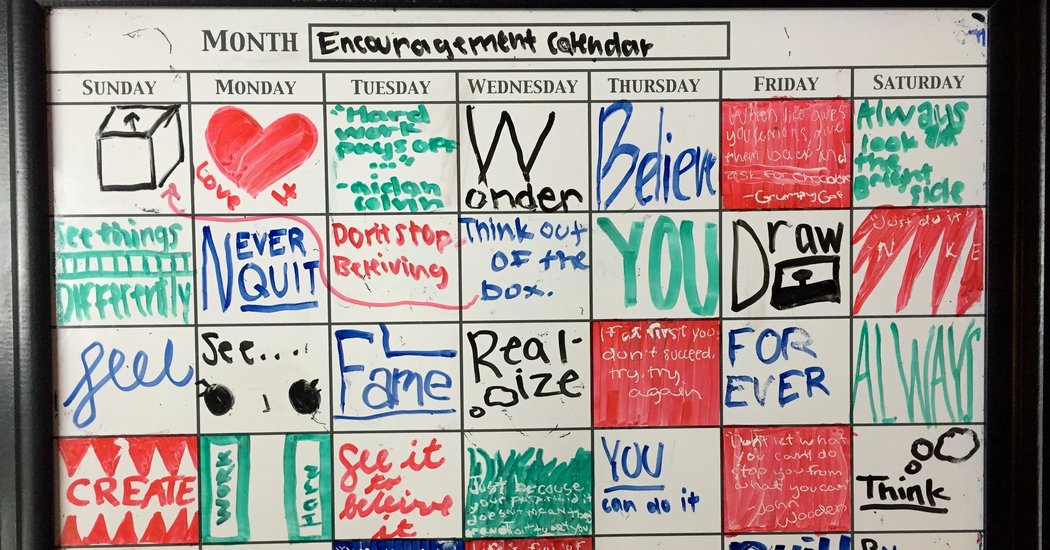 MONTH Encouragement Calendar
SUNDAY MONDAY TUESDAY WEDNESDAY THURSDAY FRIDAY SATURDAY
Love
"Hard
work
pays off
..."
-aidan
colvin
Wonder
Believe
When life gives
you lemons give
them back and
ask for chocolate
-Grumpy Cat
Always
look on
the
Bright
side
See things
Differently
NEVER
QUIT
Don't stop
Beleiving
Think out
OF the
box.
YOU
Draw
"Just do it"
NIKE
feel
See....
Fame
Real-
ize
If at first you
don't succeed,
try, try
again
FOR
EVER
ALWAYS
CREATE
WORK
HARD
See it
to
beleive
it
Just because
doesn't mean the
YOU
can do it
"Don't let what
you can't do
stop you from
what you can"
-John
Wooden
Think